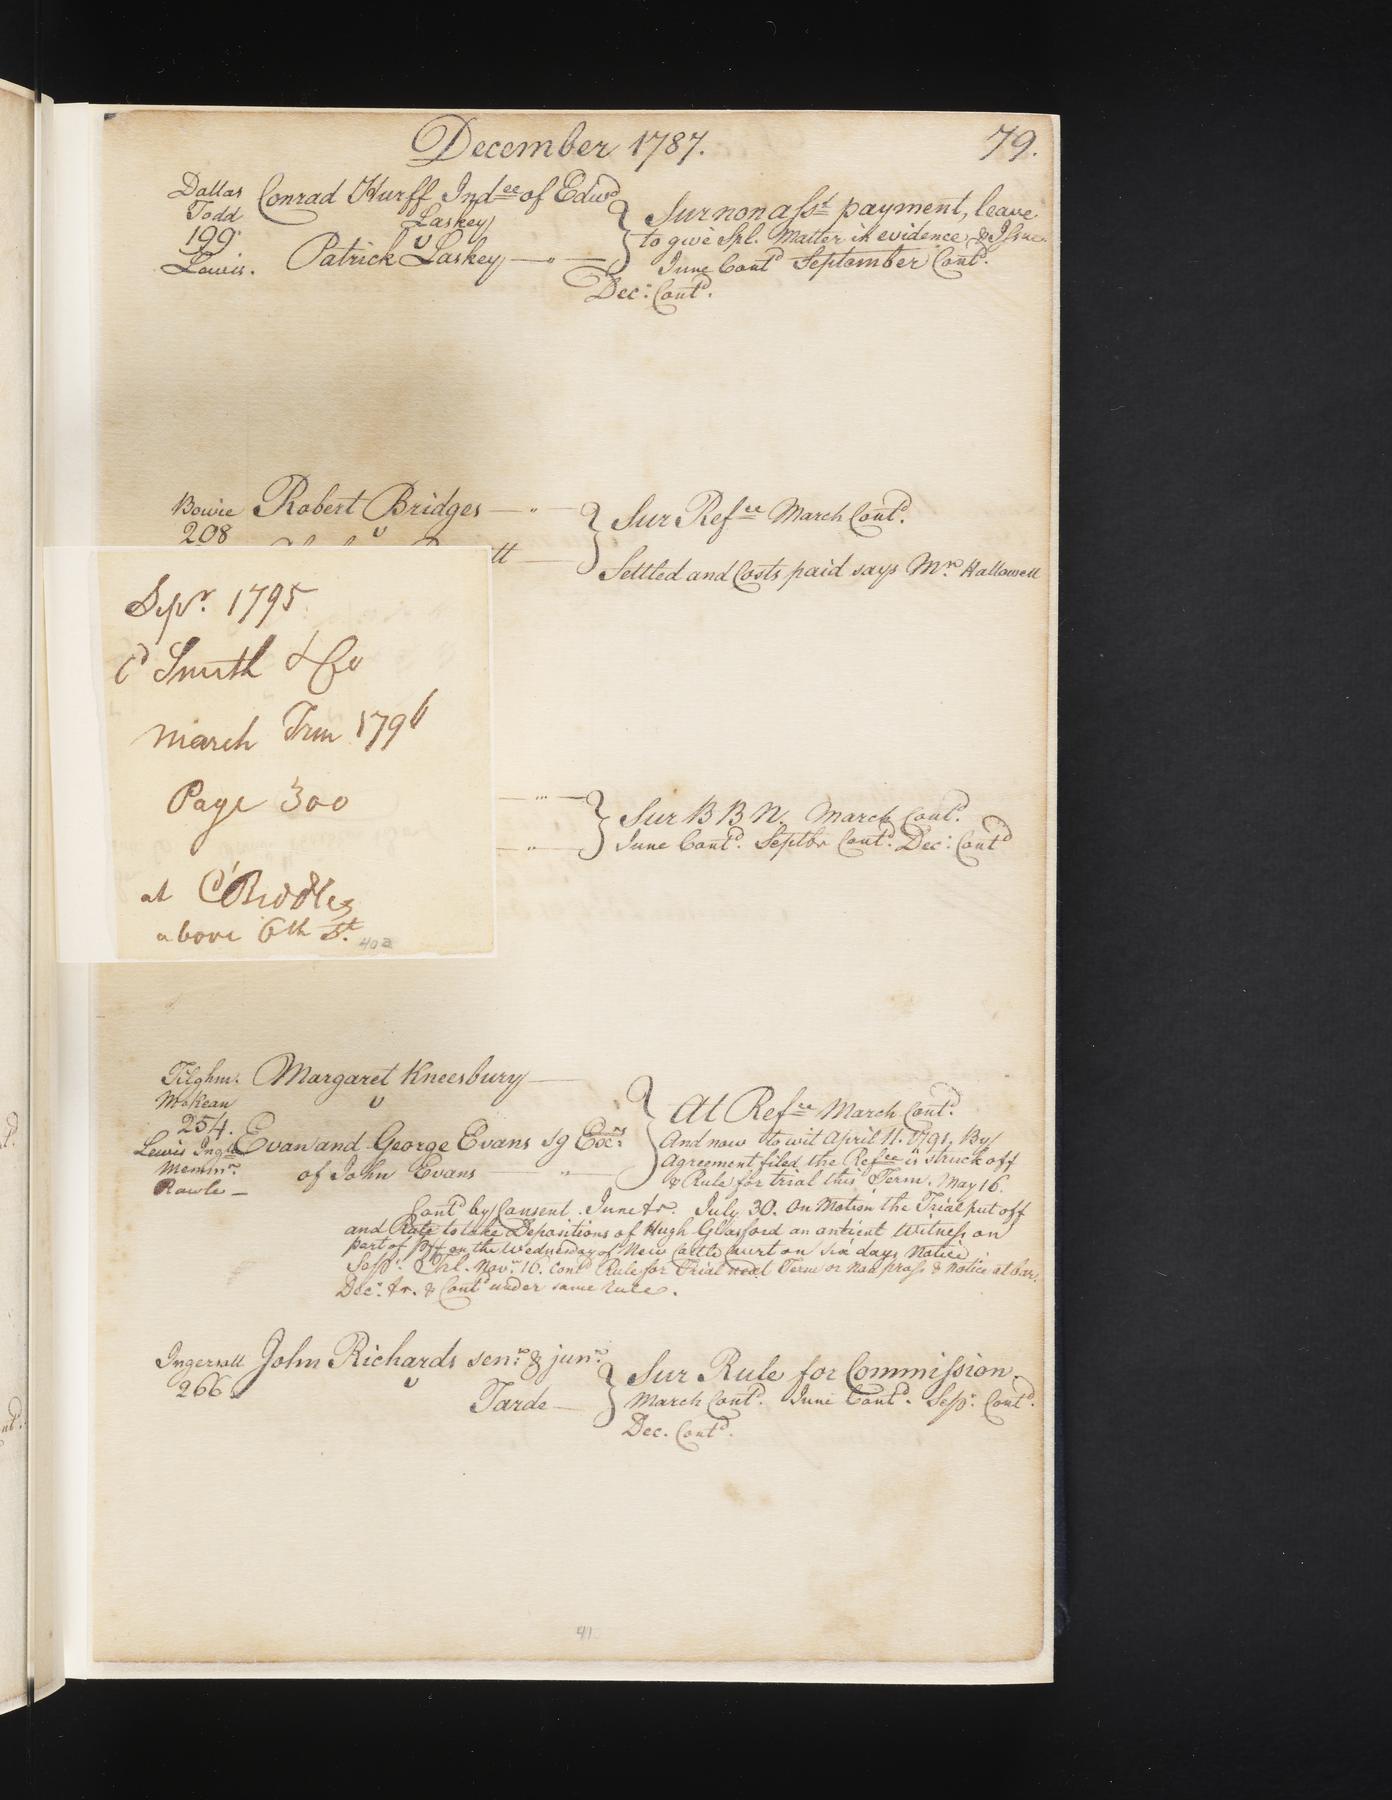 December 1787.
79.
Dallas
Todd
199
Lewis.
Conrad Hurff Indee of Edwd
Laskey
v
Patrick Laskey
Sur non asst payment, leave
to give Spl. Matter in evidence & Issue
June Contd September Contd.
Decr: Contd.
Bowie
208
Robert Bridges
v
tt
Sur Refee March Contd.
Settled and Costs paid says Mr. Hallowell
Sepr. 1795
Smith & Co
March Trm 1796
Page 300
at
above 6th St.
402
Sur B B N. March Contd.
June Contd. Septbr Contd. Dec: Contd
Tilghm:
McKean
254.
Lewis Ingll
Rawle
Margaret Kneesbury
v
Evan and George Evans sg Exrs:
of John Evans
At Refee March Contd.
And now to wit April 11. 1791, By
Agreement filed the Refee is struck off
& Rule for trial this Term. May 16.
Contd by Consent. June &c. July 30. On Motion the Trial put off
and Rule to take Depositions of Hugh Glasford an antient Witness on
part of Plff on the Wednesday of New Castle Court on six days Notice
Sepr. Nov: 16. Contd Rule for Trial next Term or Non pross & notice at bar.
Decr: &c. & Contd under same rule.
Ingersoll
266
John Richards senr: & junr:
v
Tarde
Sur Rule for Commission.
March Contd. June Contd. Sepr. Contd.
Dec. Contd.
41